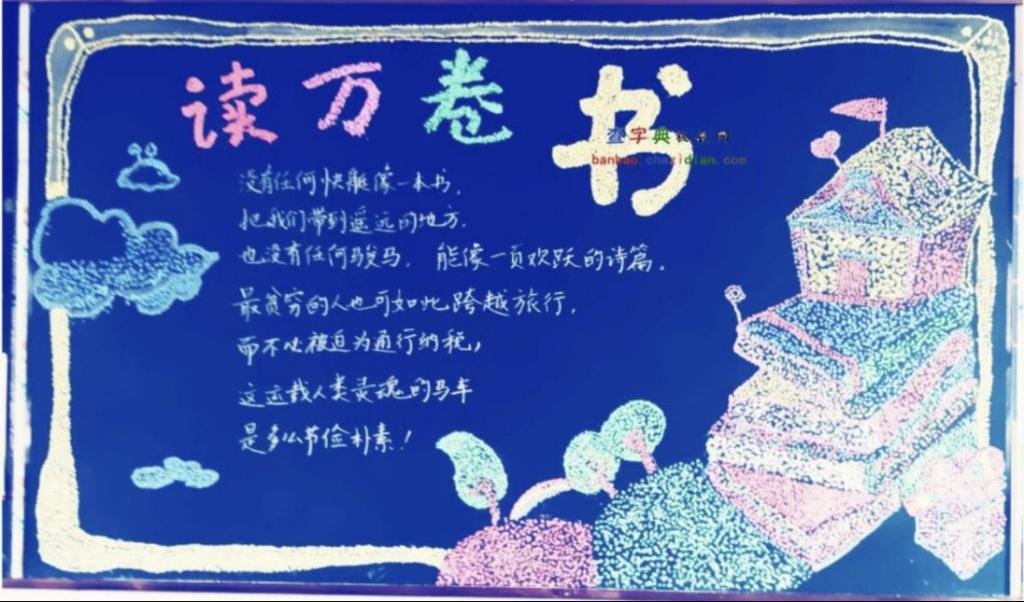 读万卷书
查字典
banbao.chazidian.com
没有任何快艇像一本书,
把我们带到遥远的地方,
也没有任何骏马, 能像一页欢跃的诗篇。
最贫穷的人也可如此跨越旅行,
而不必被迫为通行纳税,
这运载人类灵魂的马车
是多么节俭朴素!